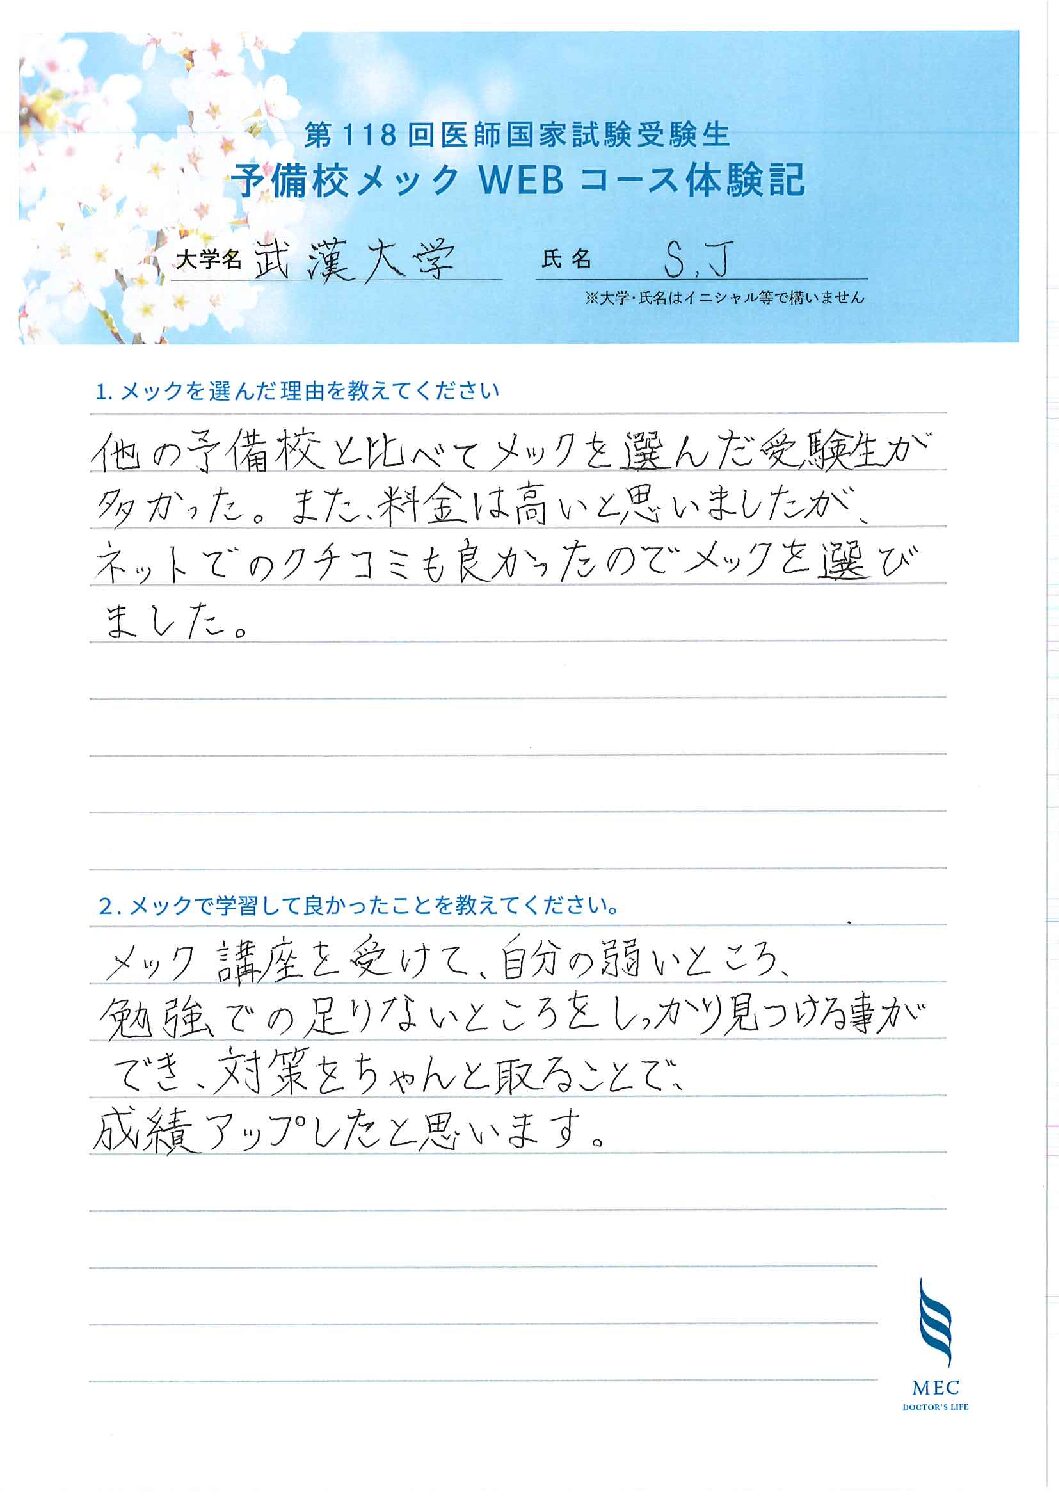 第118回医師国家試験受験生
予備校メック WEB コース体験記
大学名 武漢大学 氏名 S.J
※大学・氏名はイニシャル等で構いません
1. メックを選んだ理由を教えてください
他の予備校と比べてメックを選んだ受験生が
多かった。また、料金は高いと思いましたが、
ネットでのクチコミも良かったのでメックを選び
ました。
2. メックで学習して良かったことを教えてください。
メック講座を受けて、自分の弱いところ、
勉強での足りないところをしっかり見つける事が
でき、対策をちゃんと取ることで、
成績アップしたと思います。
MEC
DOCTOR'S LIFE